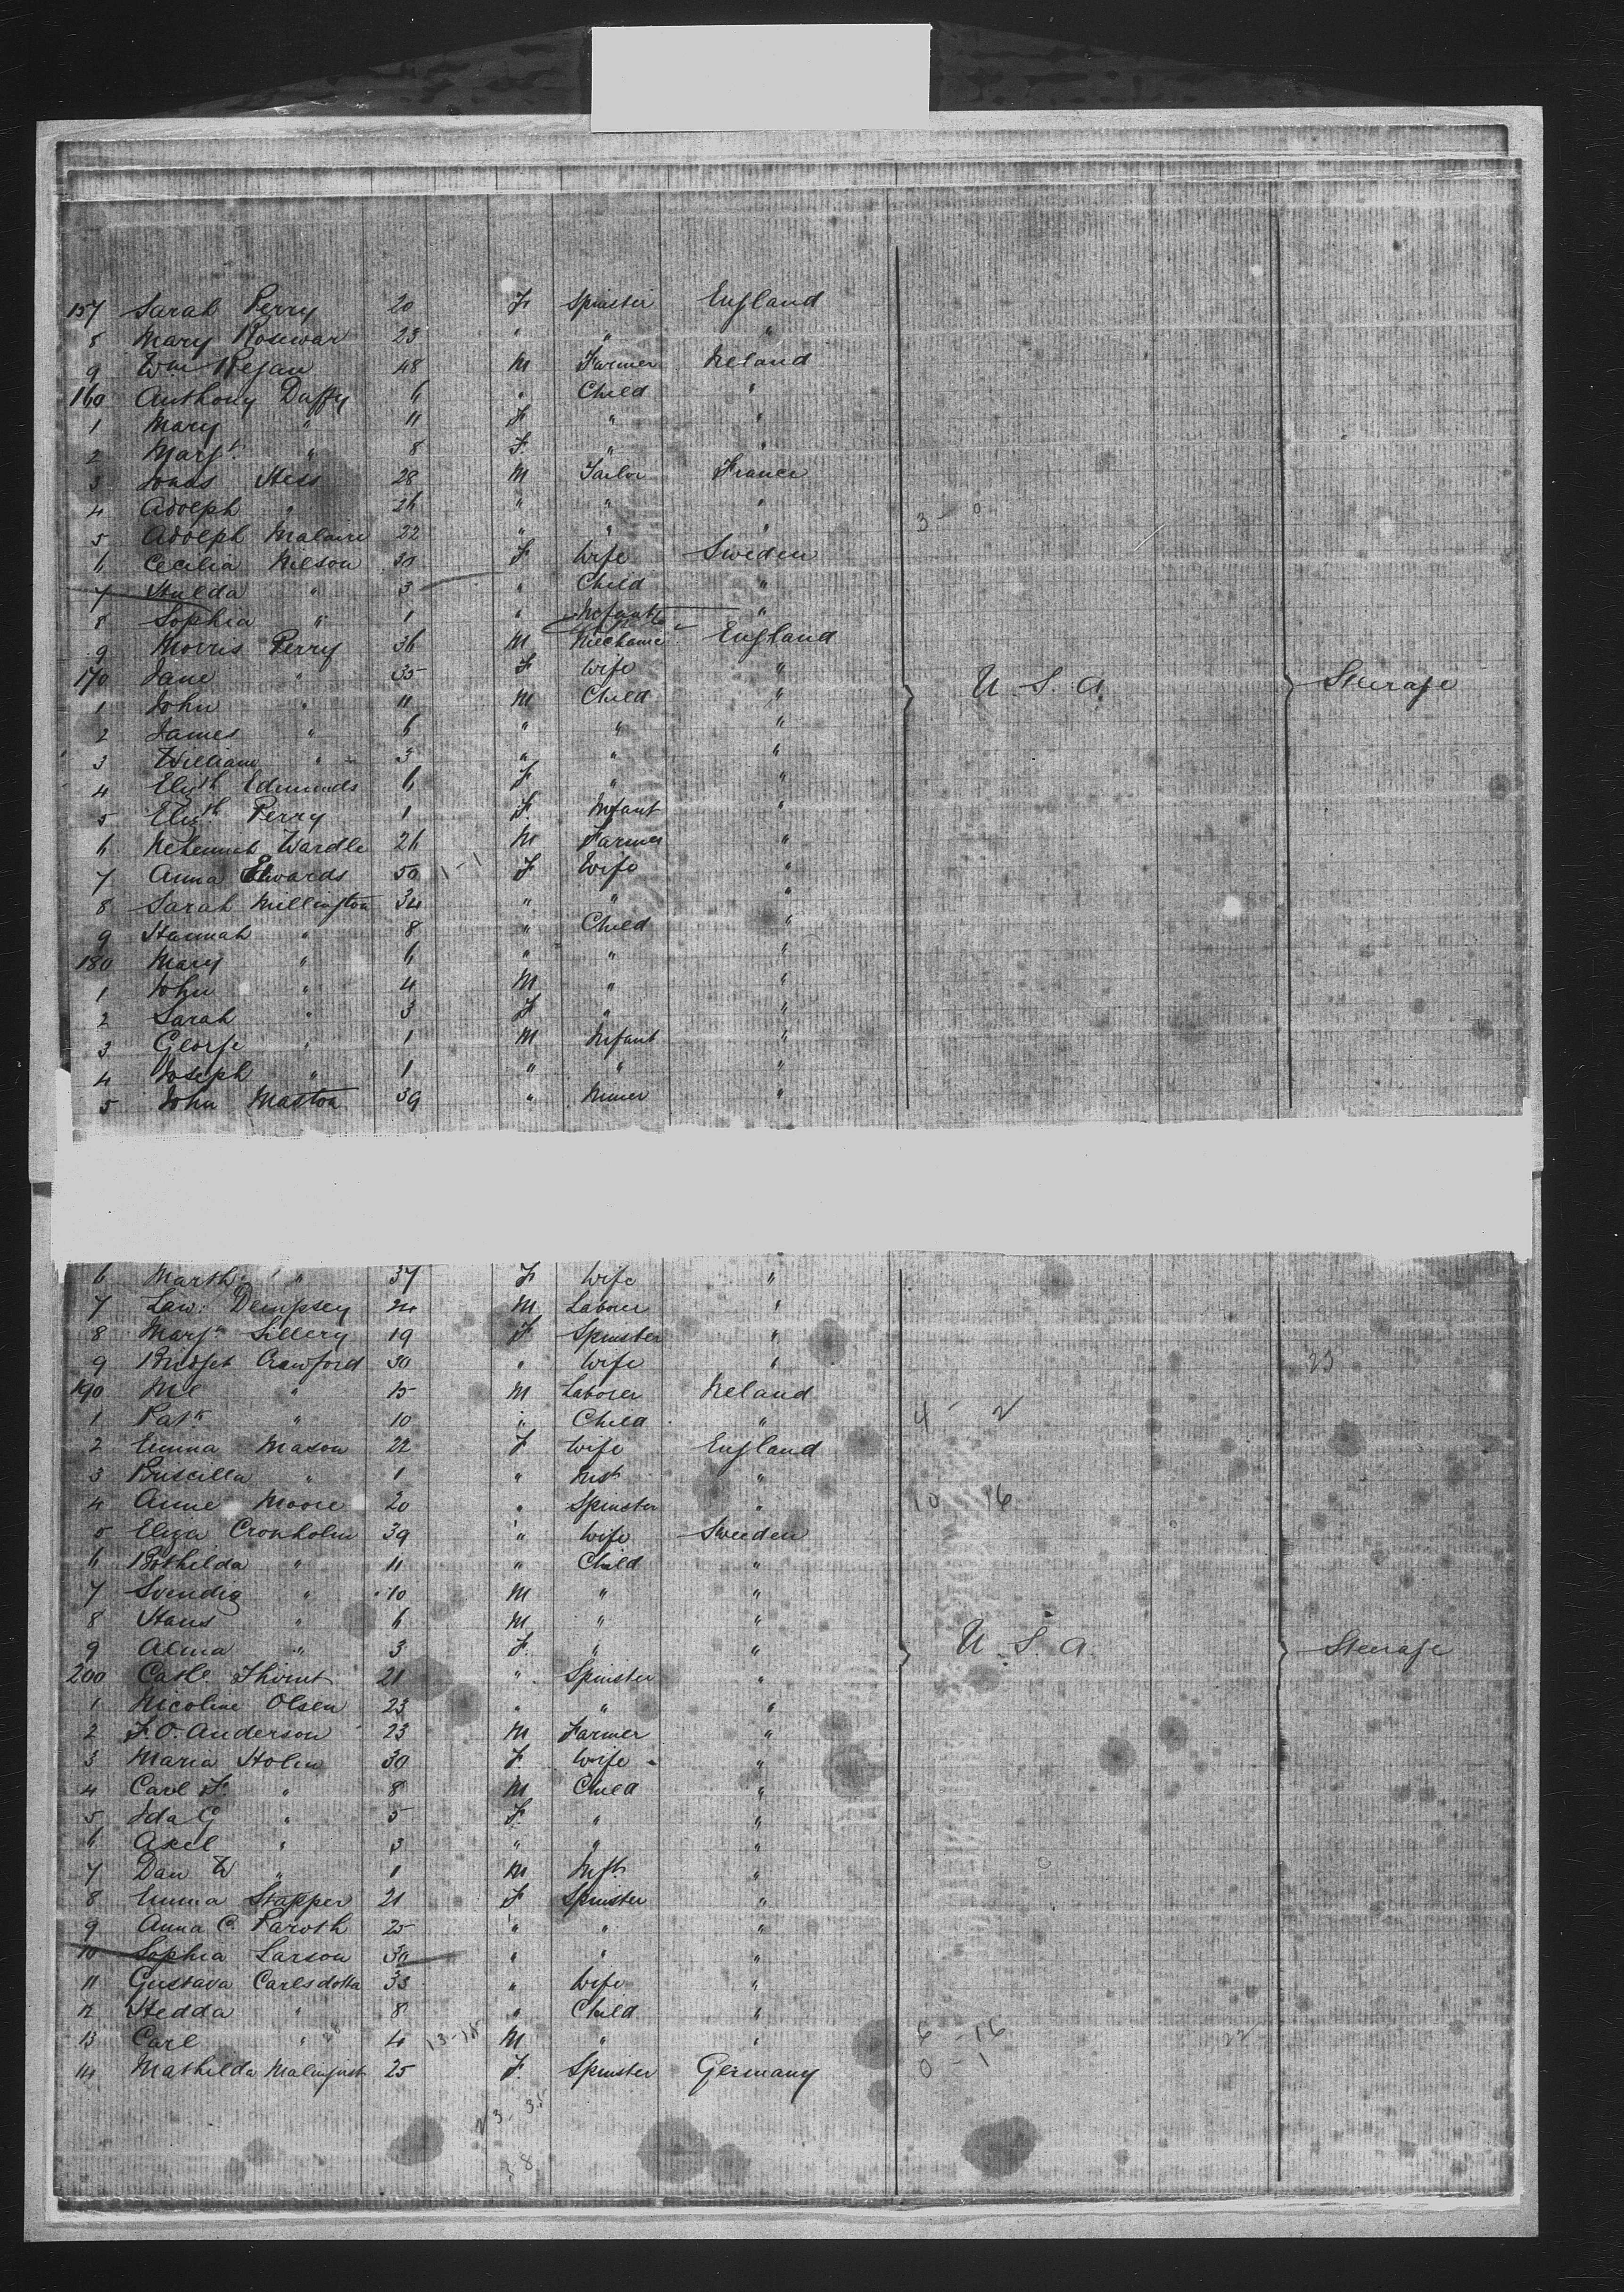 157 Sarah Perry 20 F Spinster England
8 Mary 23 " " "
9 Wm Regan 48 M Farmer Ireland
160 Anthony Duffy 6 " Child "
1 Mary " 11 F " "
2 Margt. " 8 F. " "
3 Jonas Hess 28 M Tailor France
4 Adolph " 26 " " " 3 - 0
5 Adolph Malaire 22 " " "
6 Cecilia Nilson 30 F Wife Sweden
7 Hulda " 3 " Child "
8 Sophia " 1 " Infant "
9 Morris Perry 36 M Mechanic England
170 Jane " 35 F Wife " U. S. A Steerage
1 John " 11 M Child "
2 James " 6 " " "
3 William " 3 " " "
4 Elizth Edmunds 6 F " "
5 Elizth. Perry 1 F. Infant "
6 Wardle 26 M Farmer "
7 Anna Edwards 50 1-1 F Wife "
8 Sarah Millington 34 " " "
9 Hannah " 8 " Child "
180 Mary " 6 " " "
1 John " 4 M " "
2 Sarah " 3 F " "
3 George " 1 M Infant "
4 Joseph " 1 " " "
5 John Maston 39 " Miner "
6 Marth " 37 F Wife "
7 Law: Dempsey 24 M Laborer "
8 Margt Sillery 19 F Spinster "
9 Bridget Crawford 30 " Wife "
190 Ml " 15 M Laborer Ireland
1 Patk " 10 " Child " 4 - 2
2 Emma Mason 22 F Wife England
3 Priscilla " 1 " Inft "
4 Anne Moore 20 " Spinster " 10 16
5 Eliza Cronholm 39 " Wife Sweden
6 Bothilda " 11 " Child "
7 Svendig " 10 M " "
8 Hans " 6 M " "
9 Alma " 3 F. " " U. S. A. Steerage
200 Cath. 21 " Spinster "
1 Nicoline Olsen 23 " " "
2 F. O. Anderson 23 M Farmer "
3 Maria Holm 30 F. Wife "
4 Carl F. " 8 M Child "
5 Ida G " 5 F. " "
6 Axel " 3 " " "
7 Dan W " 1 M Inft. "
8 Emma Stapper 21 F Spinster "
9 Anna C. Paroth 25 " " "
10 Sophia Larson 30 " " "
11 Gustava Carlsdotta 33 " Wife "
12 Hedda " 8 " Child "
13 Carl " 4 13-15 M " " 6 - 16 22
14 Mathilda Malmquist 25 F. Spinster Germany 0 - 1